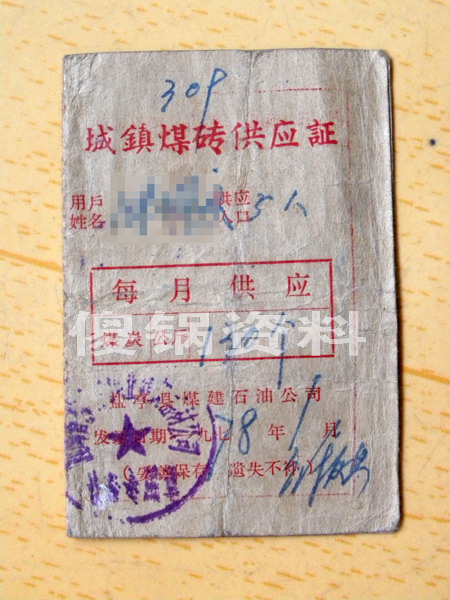 309
城鎮煤砖供应証
用戶 供应
姓名 人口 5人
每月供应
煤炭
傻锅资料
盐亭县煤建石油公司
发证日期：一九七8年1月
（妥善保存 遗失不补）